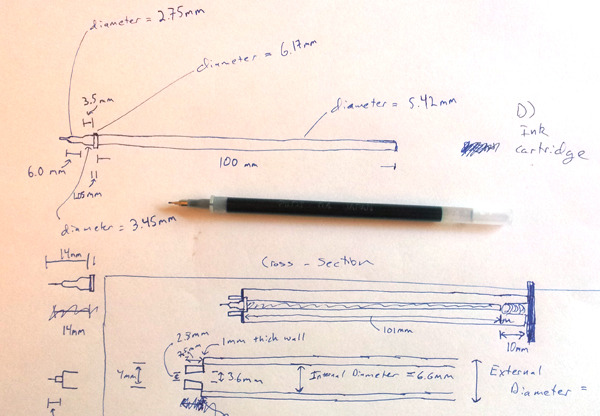 diameter = 2.75mm
diameter = 6.17mm
3.5mm
diameter = 5.42mm
D)
Ink
cartridge
6.0 mm
100 mm
diameter = 3.45mm
14mm
14mm
Cross - Section
101mm
10mm
2.5mm
1mm thick wall
4mm
3.6mm
Internal Diameter = 6.6mm
External
Diameter =